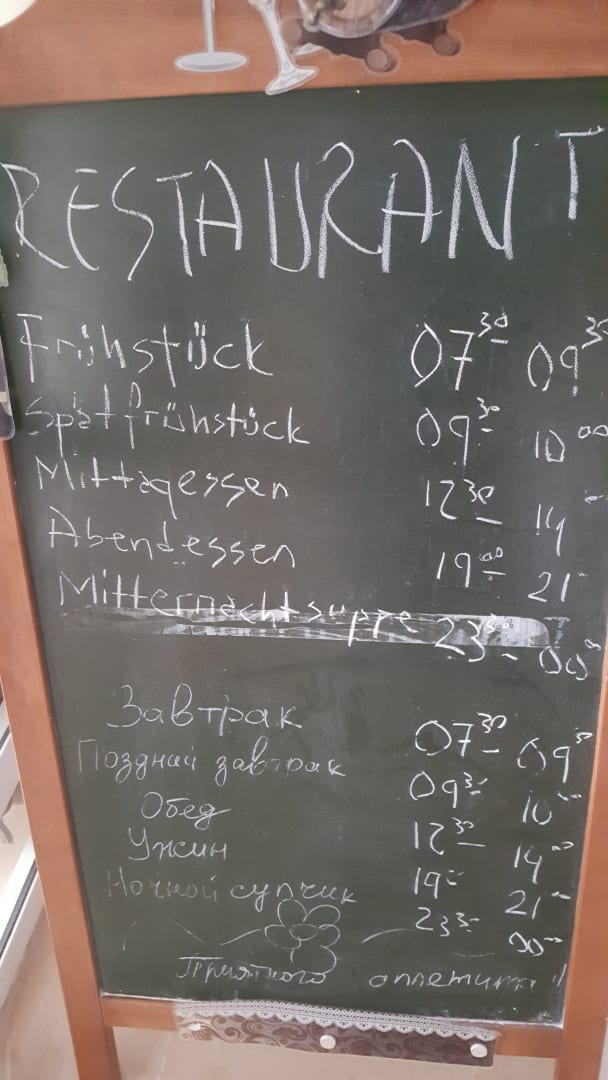 RESTAURANT
Frühstück 07³⁰- 09³⁰
Spätfrühstück 09³⁰- 10⁰⁰
Mittagessen 12³⁰- 14⁻
Abendessen 19⁰⁰- 21⁻
Mitternachtsuppe 23³⁰- 00³⁰
Завтрак 07³⁰- 09³⁰
Поздний завтрак 09³⁰- 10⁰⁰
Обед 12³⁰- 14⁰⁰
Ужин 19⁻ 21⁰⁰
Ночной супчик 23³⁰- 00⁰⁰
Приятного аппетита!!